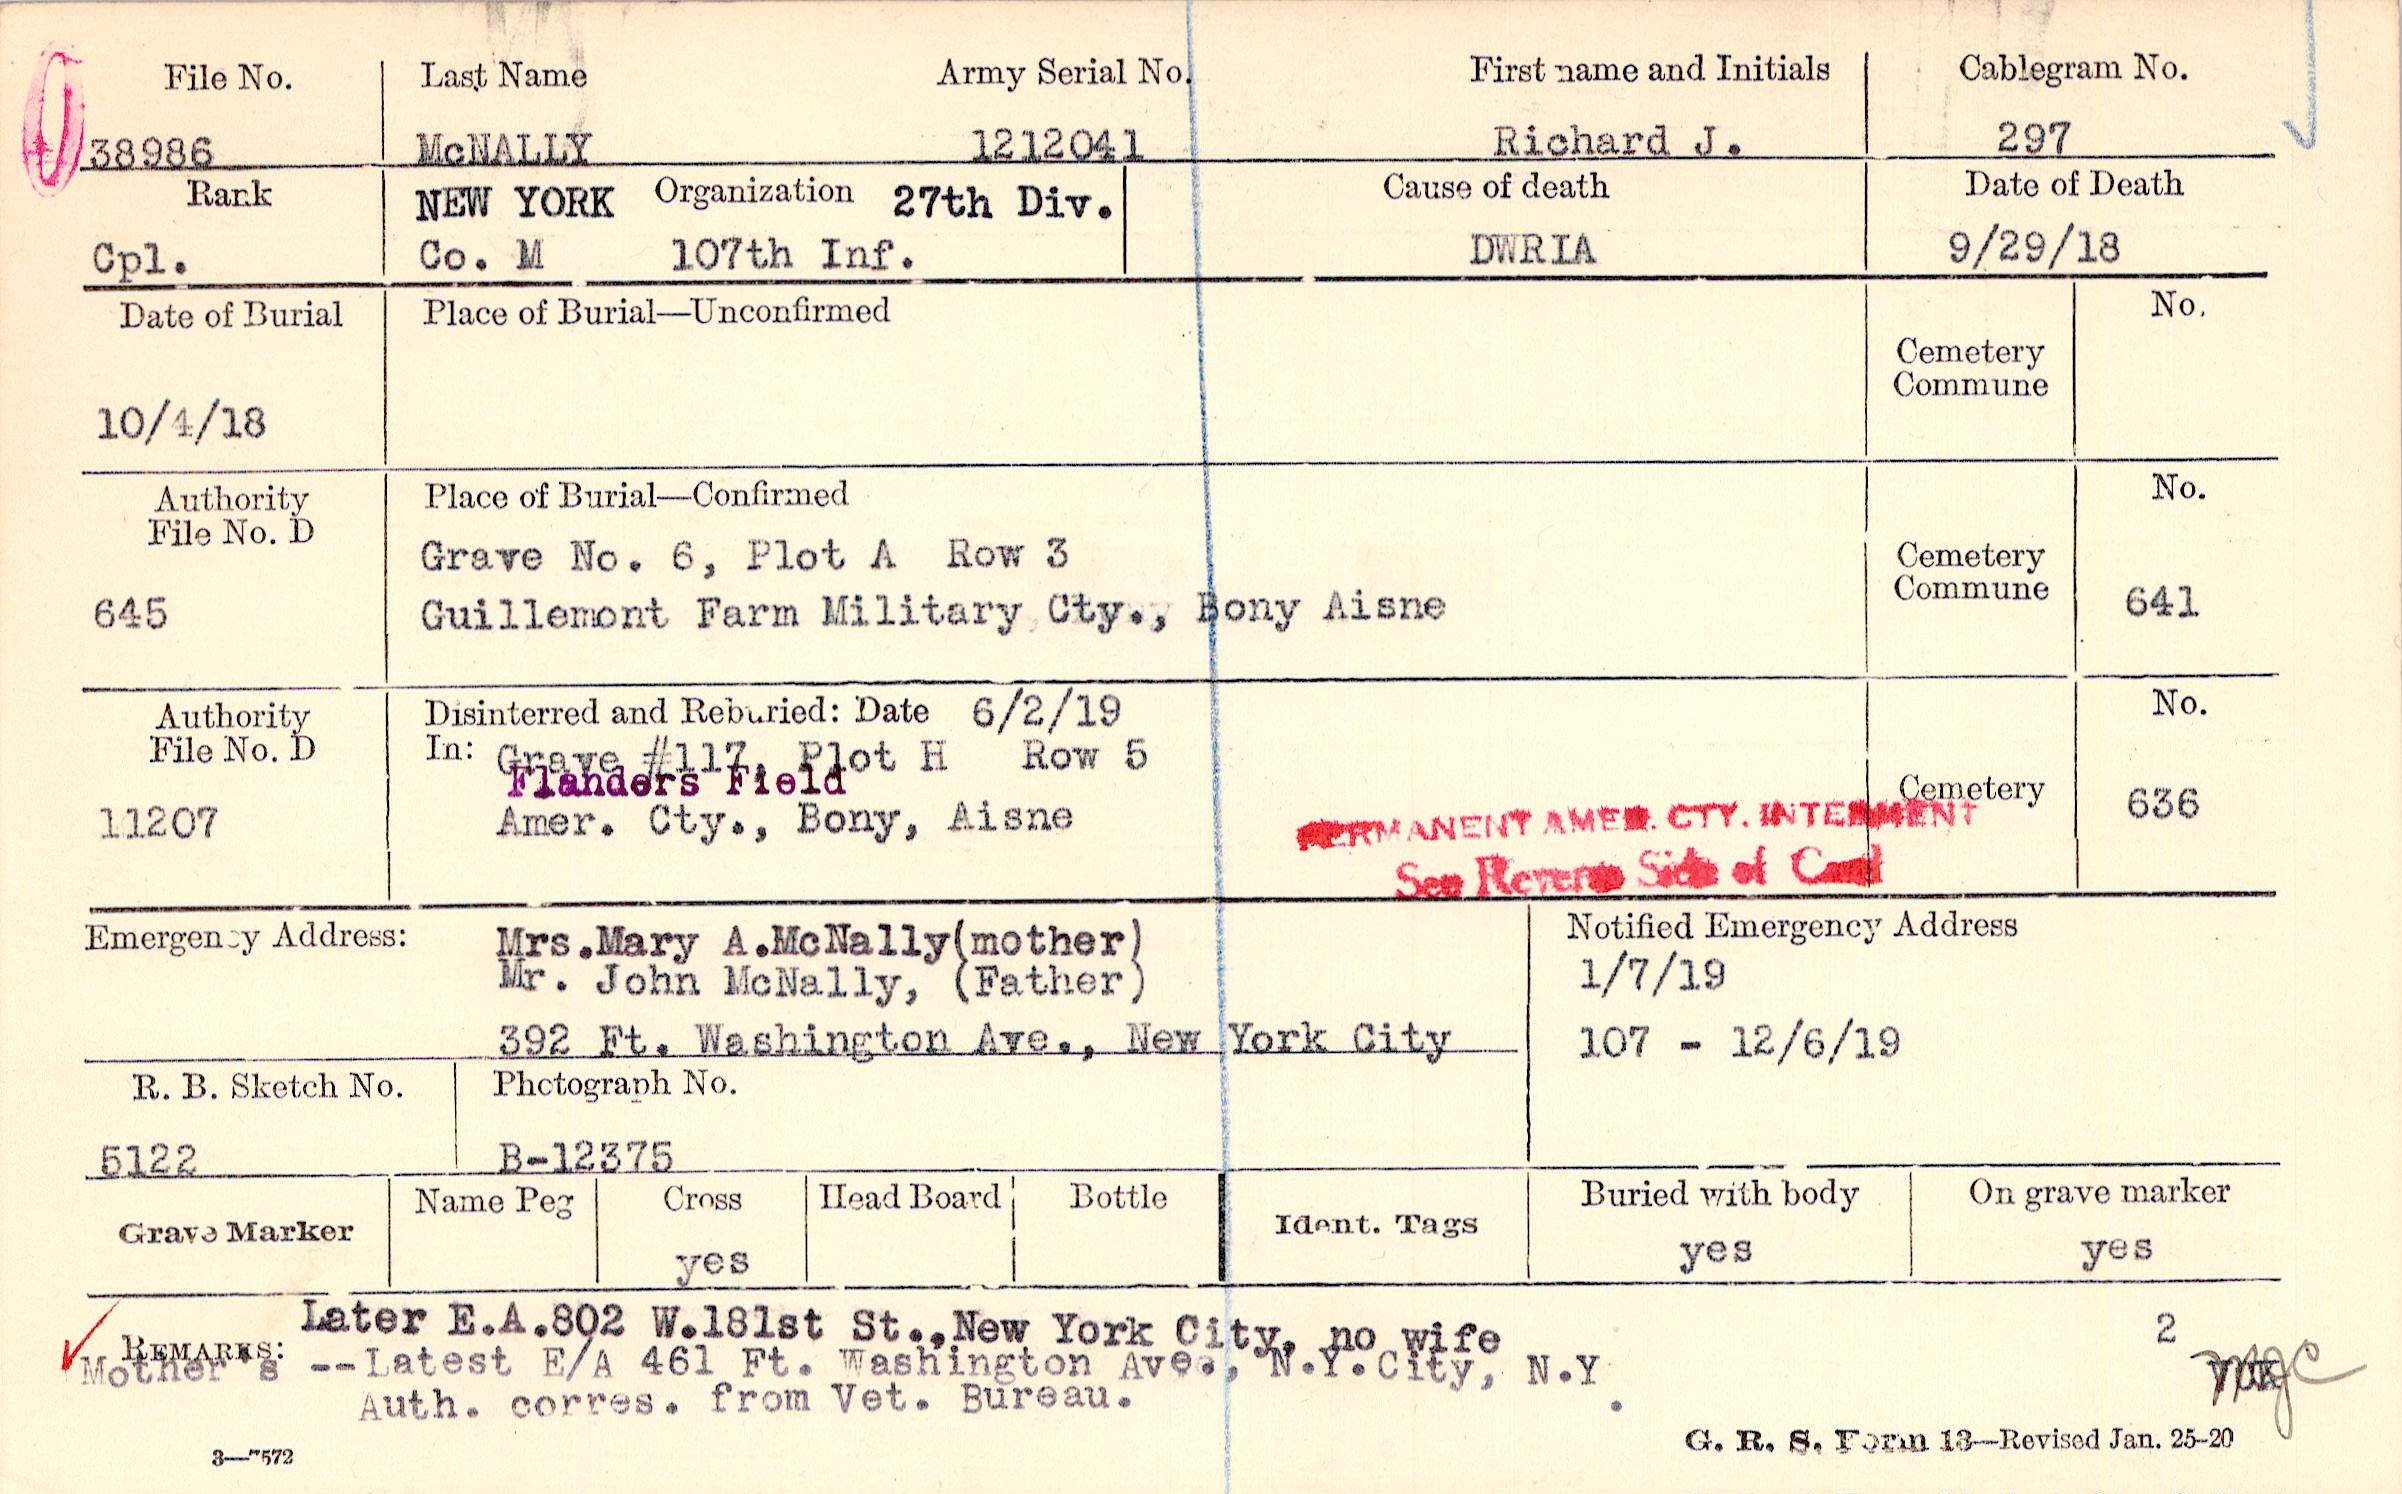 File No. Last Name Army Serial No. First name and Initials Cablegram No.
38986 McNALLY 1212041 Richard J. 297
Rank NEW YORK Organization 27th Div. Cause of death Date of Death
Cpl. Co. M 107th Inf. DWRIA 9/29/18
Date of Burial Place of Burial—Unconfirmed No.
Cemetery
Commune
10/4/18
Authority Place of Burial—Confirmed No.
File No. D
Grave No. 6, Plot A Row 3 Cemetery
645 Guillemont Farm Military Cty., Bony Aisne Commune 641
Authority Disinterred and Reburied: Date 6/2/19 No.
File No. D In: Grave #117, Plot H Row 5
Flanders Field Cemetery
11207 Amer. Cty., Bony, Aisne 636
PERMANENT AMER. CTY. INTERMENT
See Reverse Side of Card
Emergency Address: Mrs.Mary A.McNally(mother) Notified Emergency Address
Mr. John McNally, (Father) 1/7/19
392 Ft. Washington Ave., New York City 107 - 12/6/19
R. B. Sketch No. Photograph No.
5122 B-12375
Grave Marker Name Peg Cross Head Board Bottle Ident. Tags Buried with body On grave marker
yes yes yes
Later E.A.802 W.181st St.,New York City, no wife 2
REMARKS:
Mother's --Latest E/A 461 Ft. Washington Ave., N.Y.City, N.Y.
Auth. corres. from Vet. Bureau.
3—7572 G. R. S. Form 13—Revised Jan. 25-20